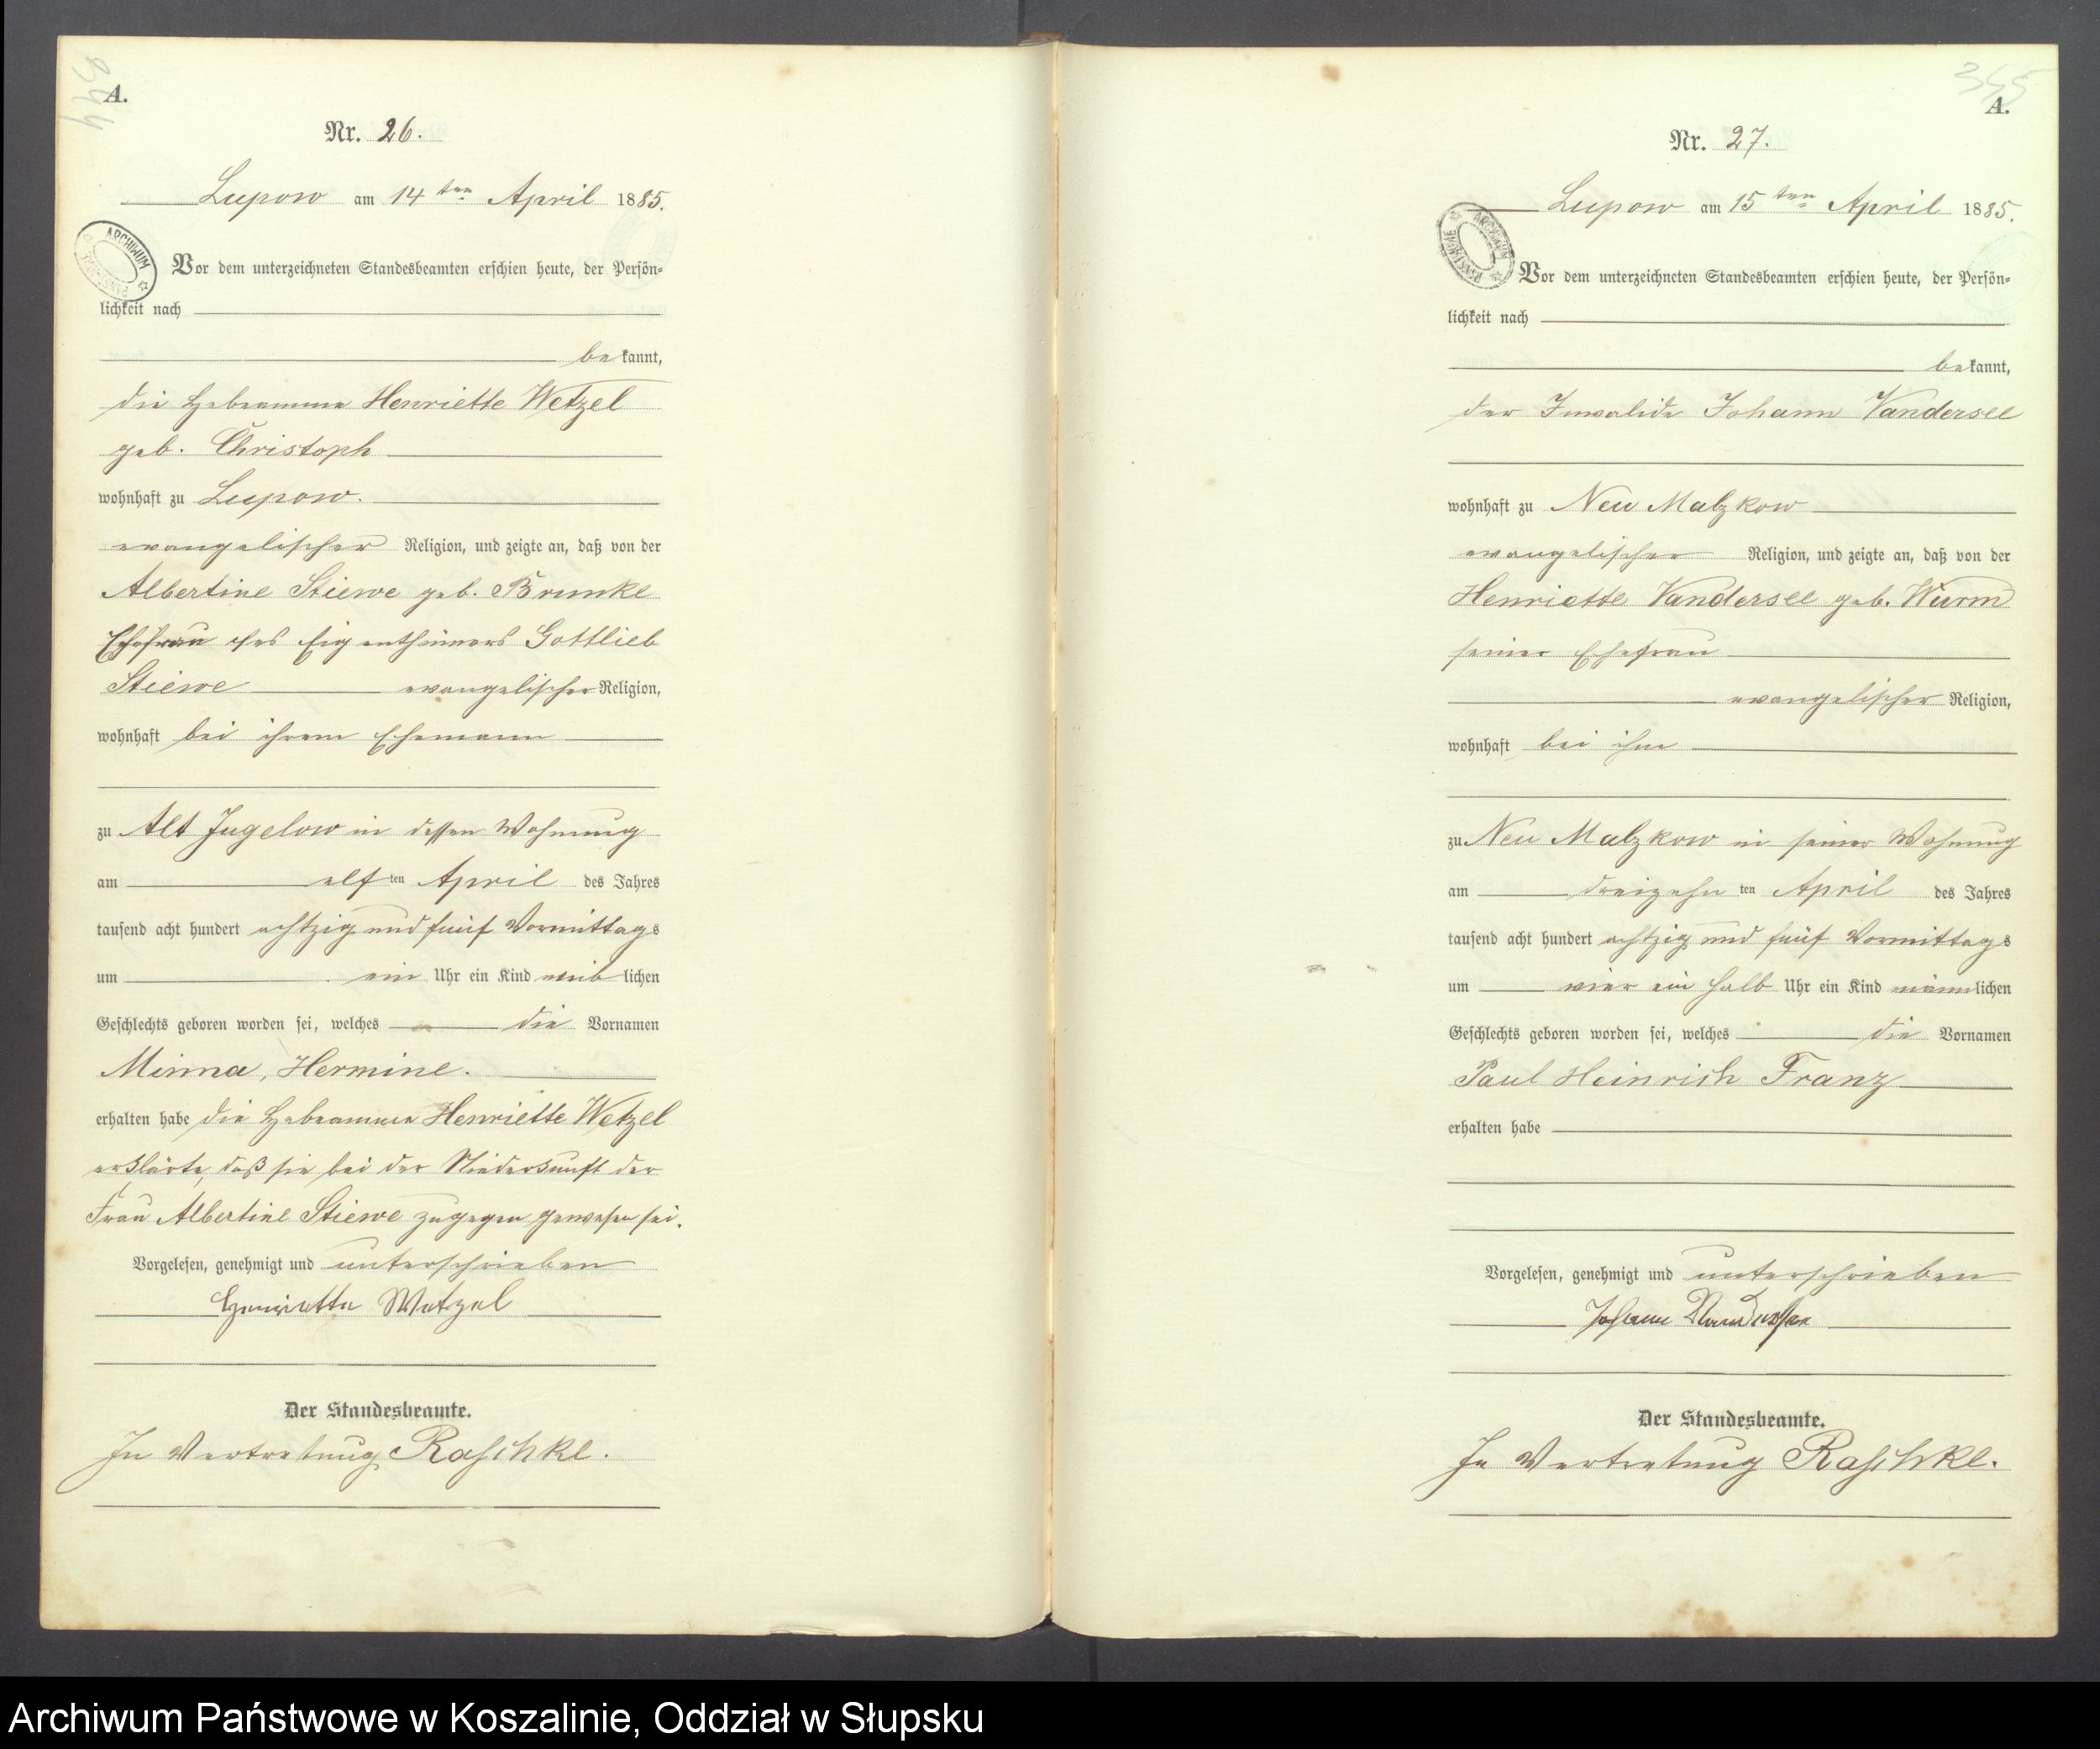 344
A.
Nr. 26.
Lupow am 14ten April 1885.
ARCHIWUM PAŃSTWOWE
Vor dem unterzeichneten Standesbeamten erschien heute, der Persön=
lichkeit nach
bekannt,
die Hebeamme Henriette Wetzel
geb. Christoph
wohnhaft zu Lupow.
evangelischer Religion, und zeigte an, daß von der
Albertine Stiewe geb. Brunke
Ehefrau des Eigenthümers Gottlieb
Stiewe evangelischer Religion,
wohnhaft bei ihrem Ehemann
zu Alt Jugelow in dessen Wohnung
am elften April des Jahres
tausend acht hundert achtzig und fünf Vormittags
um ein Uhr ein Kind weiblichen
Geschlechts geboren worden sei, welches die Vornamen
Minna, Hermine.
erhalten habe die Hebeamme Henriette Wetzel
erklärte, daß sie bei der Niederkunft der
Frau Albertine Stiewe zugegen gewesen sei.
Vorgelesen, genehmigt und unterschrieben
Henriette Wetzel
Der Standesbeamte.
In Vertretung Raschke.
345
A.
Nr. 27.
Lupow am 15ten April 1885.
ARCHIWUM PAŃSTWOWE
Vor dem unterzeichneten Standesbeamten erschien heute, der Persön=
lichkeit nach
bekannt,
der Invalide Johann Vandersee
wohnhaft zu Neu Malzkow
evangelischer Religion, und zeigte an, daß von der
Henriette Vandersee geb. Wurm
seiner Ehefrau
evangelischer Religion,
wohnhaft bei ihm
zu Neu Malzkow in seiner Wohnung
am dreizehnten April des Jahres
tausend acht hundert achtzig und fünf Vormittags
um vier ein halb Uhr ein Kind männlichen
Geschlechts geboren worden sei, welches die Vornamen
Paul Heinrich Franz
erhalten habe
Vorgelesen, genehmigt und unterschrieben
Johann Vandersee
Der Standesbeamte.
In Vertretung Raschke.
Archiwum Państwowe w Koszalinie, Oddział w Słupsku